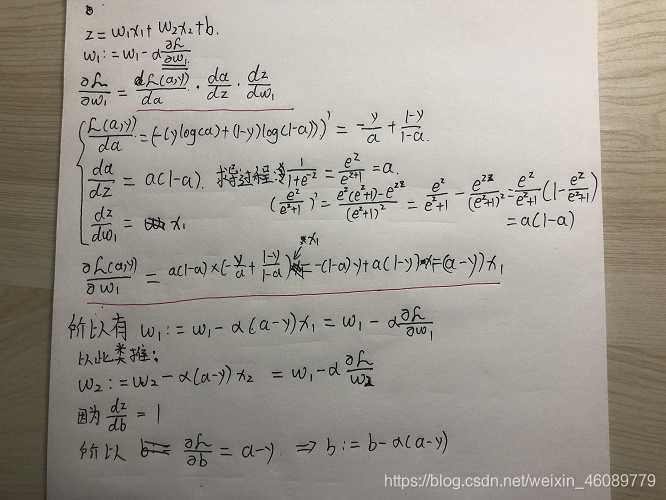 z = w₁x₁ + w₂x₂ + b.
w₁ := w₁ - α ∂L/∂w₁
∂L/∂w₁ = dL(a,y)/da · da/dz · dz/dw₁
L(a,y)/da = (-(y log(a) + (1-y) log(1-a)))' = -y/a + (1-y)/(1-a).
da/dz = a(1-a). 求导过程: 1/(1+e^-z) = e^z/(e^z+1) = a.
(e^z/(e^z+1))' = (e^z(e^z+1) - e^2z)/(e^z+1)² = e^z/(e^z+1) - e^2z/(e^z+1)² = e^z/(e^z+1) (1 - e^z/(e^z+1))
= a(1-a)
dz/dw₁ = x₁
∂L(a,y)/∂w₁ = a(1-a) × (-y/a + (1-y)/(1-a)) x₁ = -(1-a)·y + a(1-y)·x = (a-y) x₁
所以有 w₁ := w₁ - α(a-y)x₁ = w₁ - α ∂L/∂w₁
以此类推:
w₂ := w₂ - α(a-y)x₂ = w₁ - α ∂L/w₂
因为 dz/db = 1
所以 ∂L/∂b = a-y ⇒ b := b - α(a-y)
https://blog.csdn.net/weixin_46089779